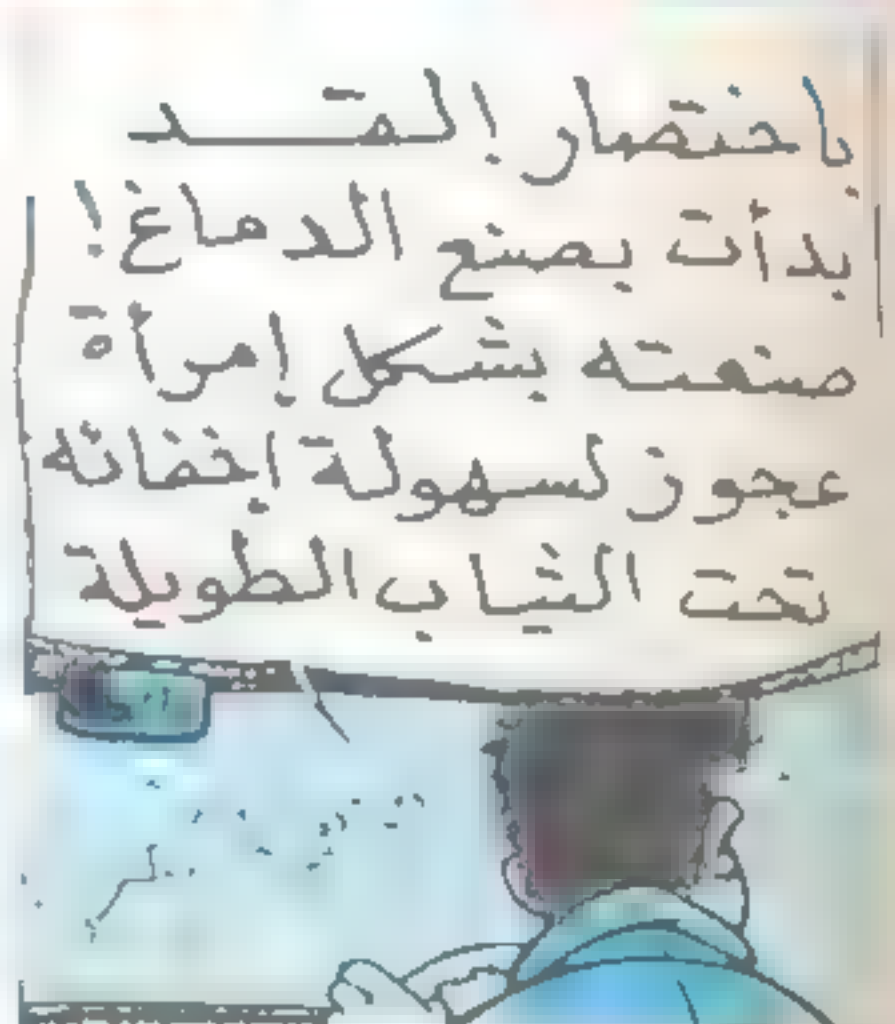 باختصار! لقــد
بدأت بصنع الدماغ!
صنعته بشكل إمرأة
عجوز لسهولة إخفائه
تحت الثياب الطويلة